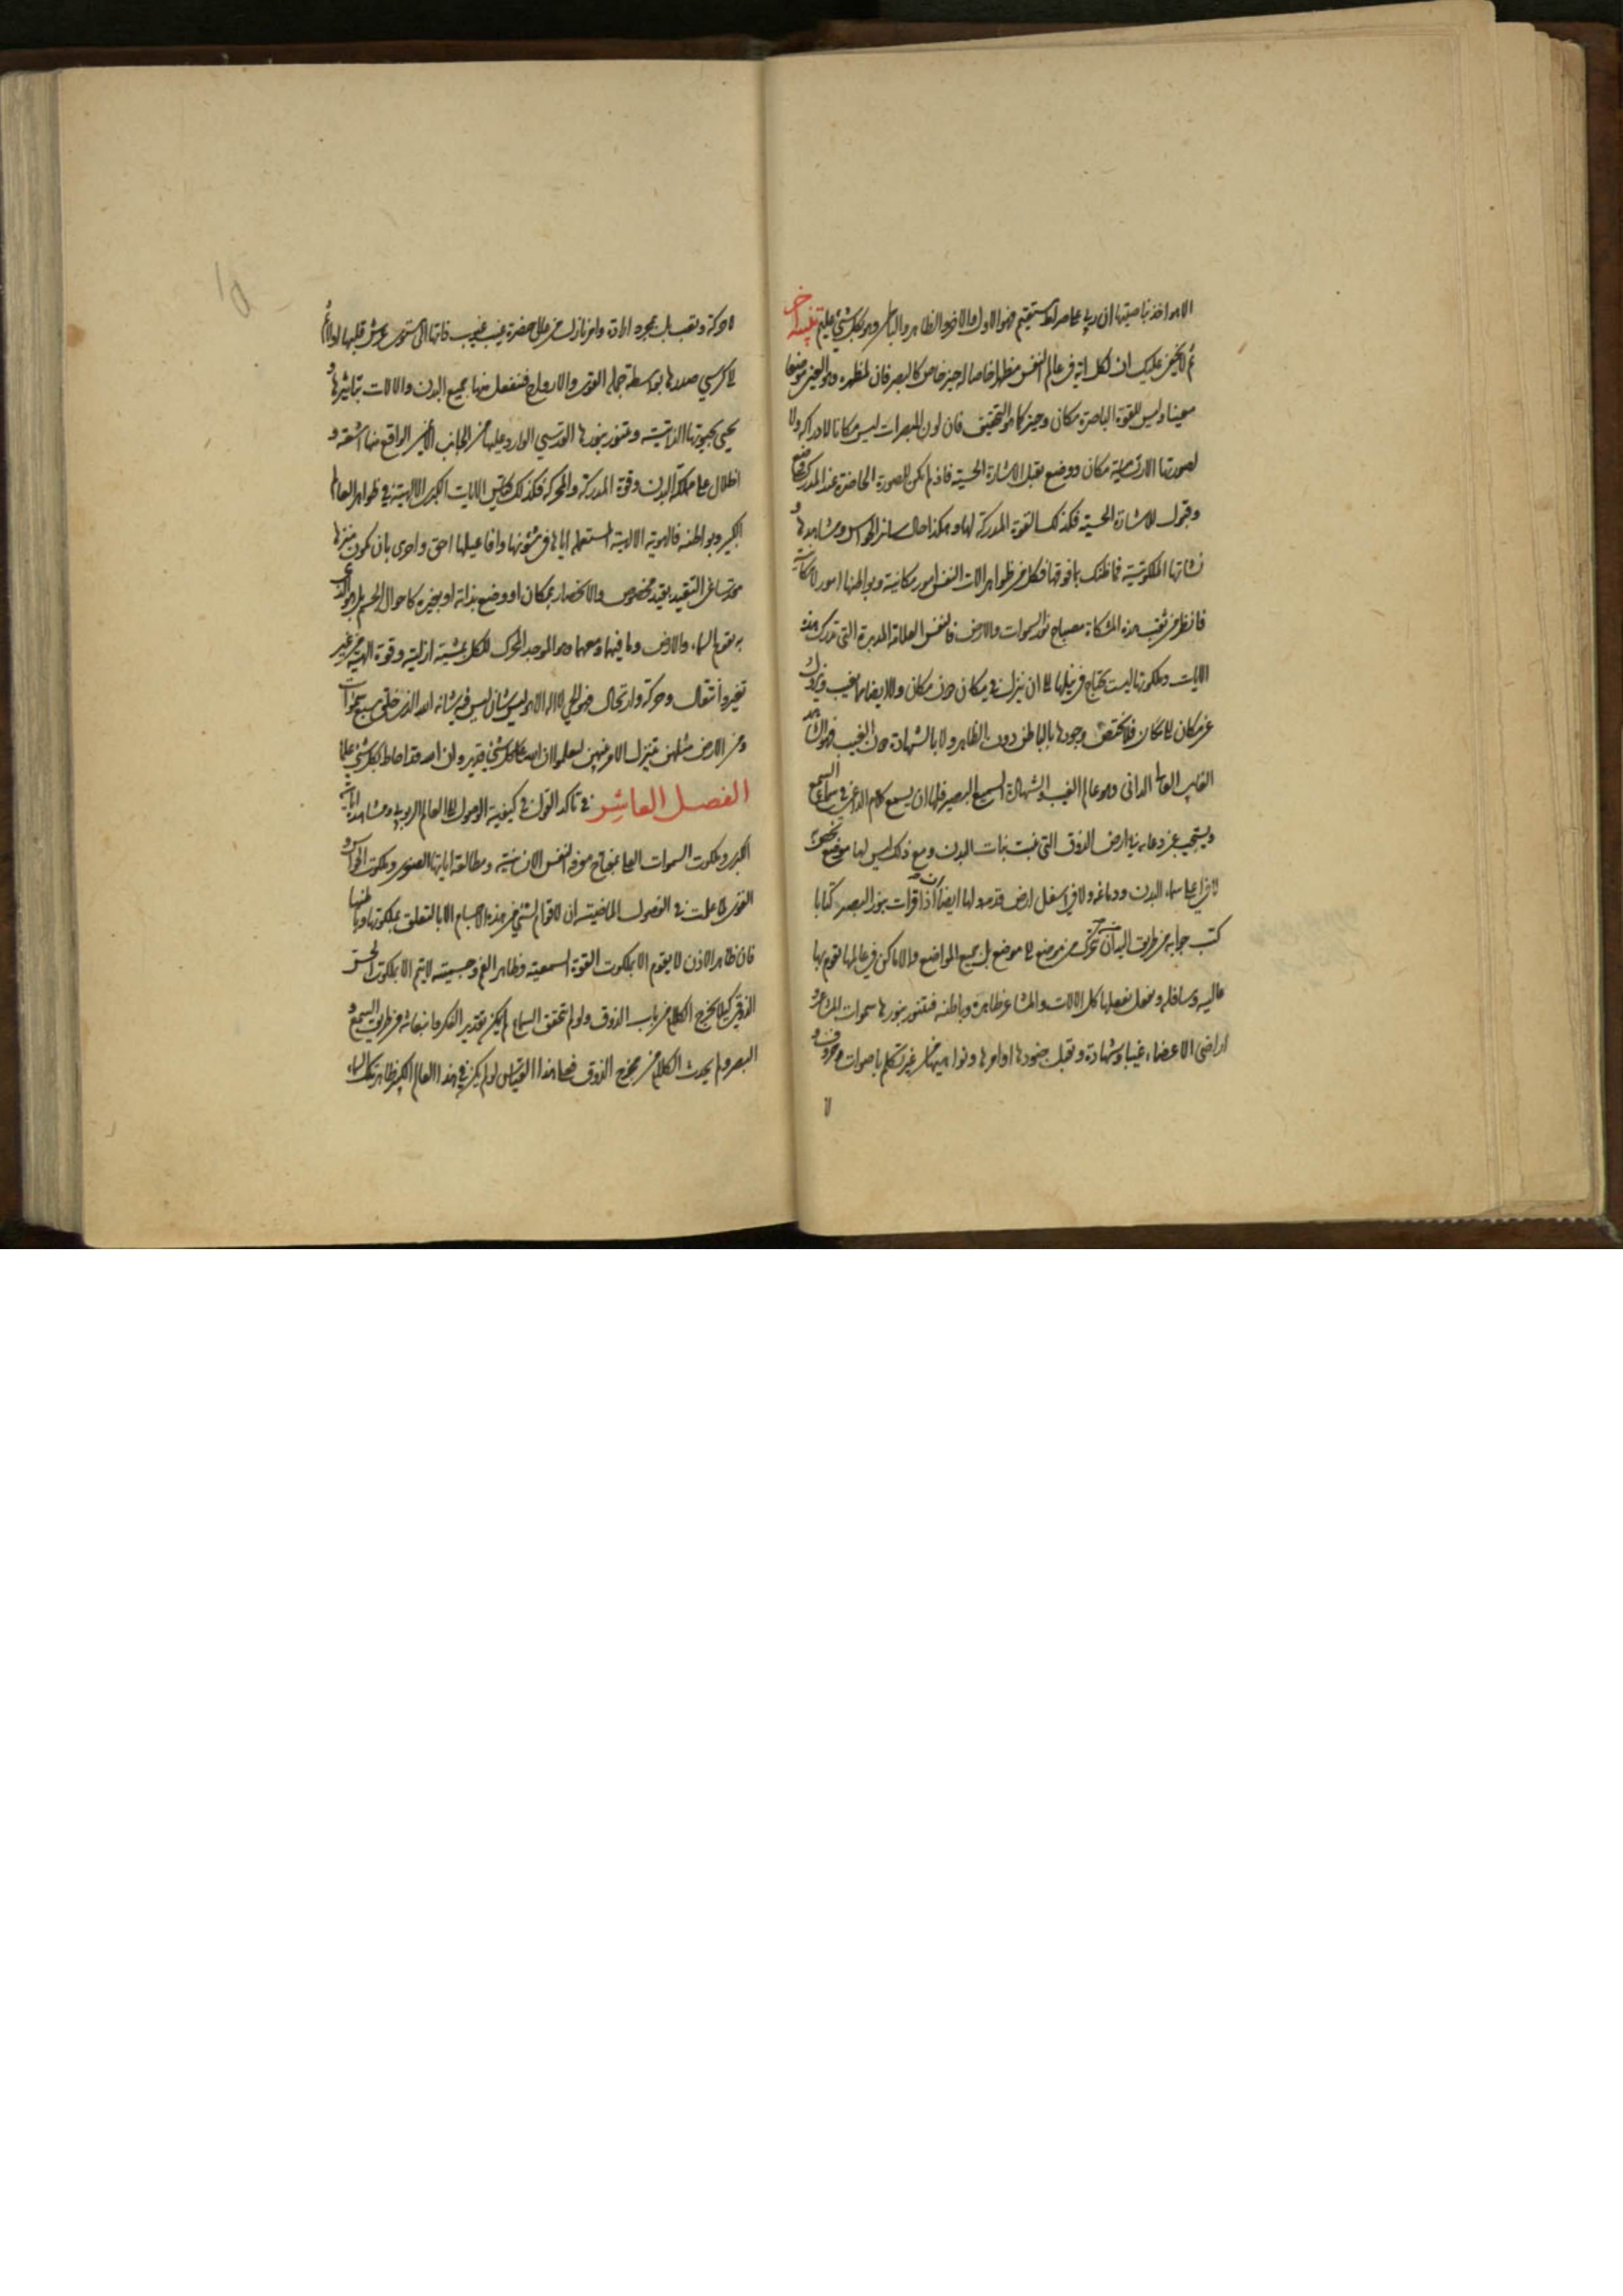 الا هو اخذ بناصيتها ان ربي على صراط مستقيم فهو الاول والاخر والظاهر والباطن وهو بكل شيء عليم تنبيه اخر
ثم لا يخفى عليك ان لكل اية في عالم النفس مظهرا خاصا له حيز خاص كالبصر فان لمظهره وهو العين موضعا
معينا وليس للقوة الباصرة مكان وحيز كما هو التحقيق فان لون المبصرات ليس مكانا لادراكه ولا
لصورتها الادراكية مكان ووضع يقبل الاشارة الحسية فاذا لم يكن للصورة الحاضرة عند المدرك وضع
وقبول للاشارة الحسية فكذلك القوة المدركة لها وهكذا حال سائر الحواس ومشاهدها و
نشاتها الملكوتية فما ظنك بما فوقها فكل من ظواهر الات النفس امور مكانية وبواطنها امور لا مكانية
فانظر من ثقب هذه المشكاة مصباح نور السموات والارض فالنفس العلامة المدبرة التي تدرك هذه
الايات وملكوتها ليست تحتاج في نيلها الى ان ينزل في مكان دون مكان ولا ايضا مما يغيب ويزول
عن مكان الى مكان فلا يختص وجودها بالباطن دون الظاهر ولا بالشهادة دون الغيب فهو الشاهد
الغايب العالي الداني وهو عالم الغيب والشهادة السميع البصير فلها ان يسمع كلام الداعين في سماء السمع
ويستجيب عن دعايه في ارض الذوق التي نبت نبات البدن ومع ذلك ليس لها موضع
لا في اعلى سماء البدن ودماغه ولا في اسفل ارض قدميه لها ايضا ان اذا قرات بنور البصر كتابا
كتب جوابه من طريق البنان تحرك من موضع الى موضع بل جميع المواضع والاماكن في عالمها تقوم بها
عاليه وسافله ويفعل بفعلها كل الالات والمشاعر ظاهره وباطنه فتتنور بنورها سموات المشاعر و
اراضي الاعضاء غيبا وشهادة وتقبل جنودها اوامرها ونواهيها من غير تكلم باصوات وحروف و
لا
لا حركة وتعب بل بمجرد ارادة وامر نازل من على حضرة غيب غيوب ذاتها التي استوى عرش قلبها اولا ثم
الى كرسي صدرها بواسطة حملة القوى والارواح فتنفعل منها جميع البدن والالات بتاثيرها و
يحيى بحيوتها الذاتية وتتنور بنورها القدسي الوارد عليها من الجانب الايمن الواقع منها اشعة و
اظلال على مملكة البدن وقوة المدركة والمحركة فكذلك فقس الايات الكبرى الالهية في ظواهر العالم
الكبير وبواطنه فالهوية الالهية المستعملة اياها في شئونها وافاعيلها احق واحرى بان يكون منزها
مقدسا عن التقيد بقيد مخصوص والانحصار بمكان او وضع بذاته او بغيره كما حال الجسم بل هو الذي
به يقوم السماء والارض وما فيهما ومعهما وهو الموجد المحرك للكل بمشية ازلية وقوة الهية من غير
تغير وانتقال وحركة وارتحال فهو الحي لا اله الا هو ليس شان ليس فيه شانه الله الذي خلق سبع سموات
ومن الارض مثلهن يتنزل الامر بينهن لتعلموا ان الله على كل شيء قدير وان الله قد احاط بكل شيء علما
الفصل العاشر في تاكد القول في كيفية الوصول الى العالم الربوبي ومشاهدة اياته
الكبرى وملكوت السموات العلى بمفتاح معرفة النفس الانسانية ومطالعة اياتها الصغرى وملكوت الحواس و
القوى لما علمت في الفصول الماضية ان لا قوام لشيء من هذه الاجسام الا بالتعلق بملكوتها وباطنها
فان ظاهر الاذن لا يقوم الا بملكوت القوة السمعية وظاهر الفم وحسيته لا يتم الا بملكوت الحس
الذوقي كيلا يخرج الكلام من باب الذوق ولو لم تحقق السماع لم يكن تقدير الفكر وانبعاثه من طريق السمع و
البصر ولم يحدث الكلام من مخرج الذوق فعلى هذا القياس لو لم يكن في هذا العالم الكبير ظاهر تلك السماء